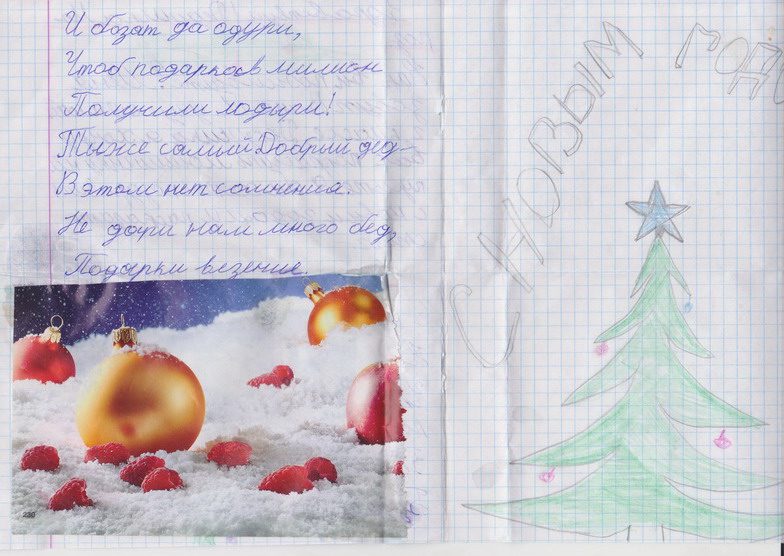 И бозат да одури,
Чтоб подарков милион
Получили лодыри!
Ты же самый Добрый дед
В этом нет сомнения.
Не дари нам много бед,
Подарки везение.
230
С НОВЫМ ГОДО